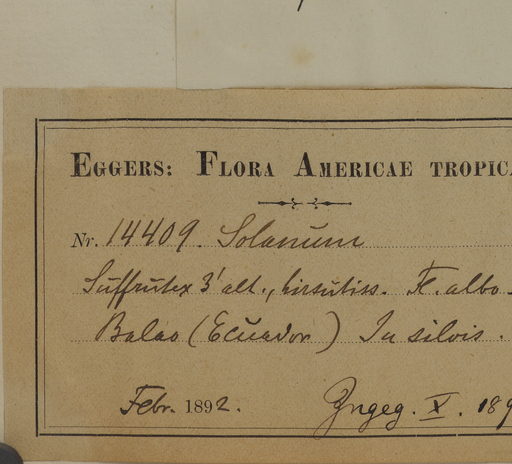 EGGERS: FLORA AMERICAE TROPICA
Nr. 14409. Solanum
Suffrutex 3' alt., hirsutiss. Fl. albo
Balao (Ecuador) In silvis.
Febr. 1892. Yngeg. X. 189